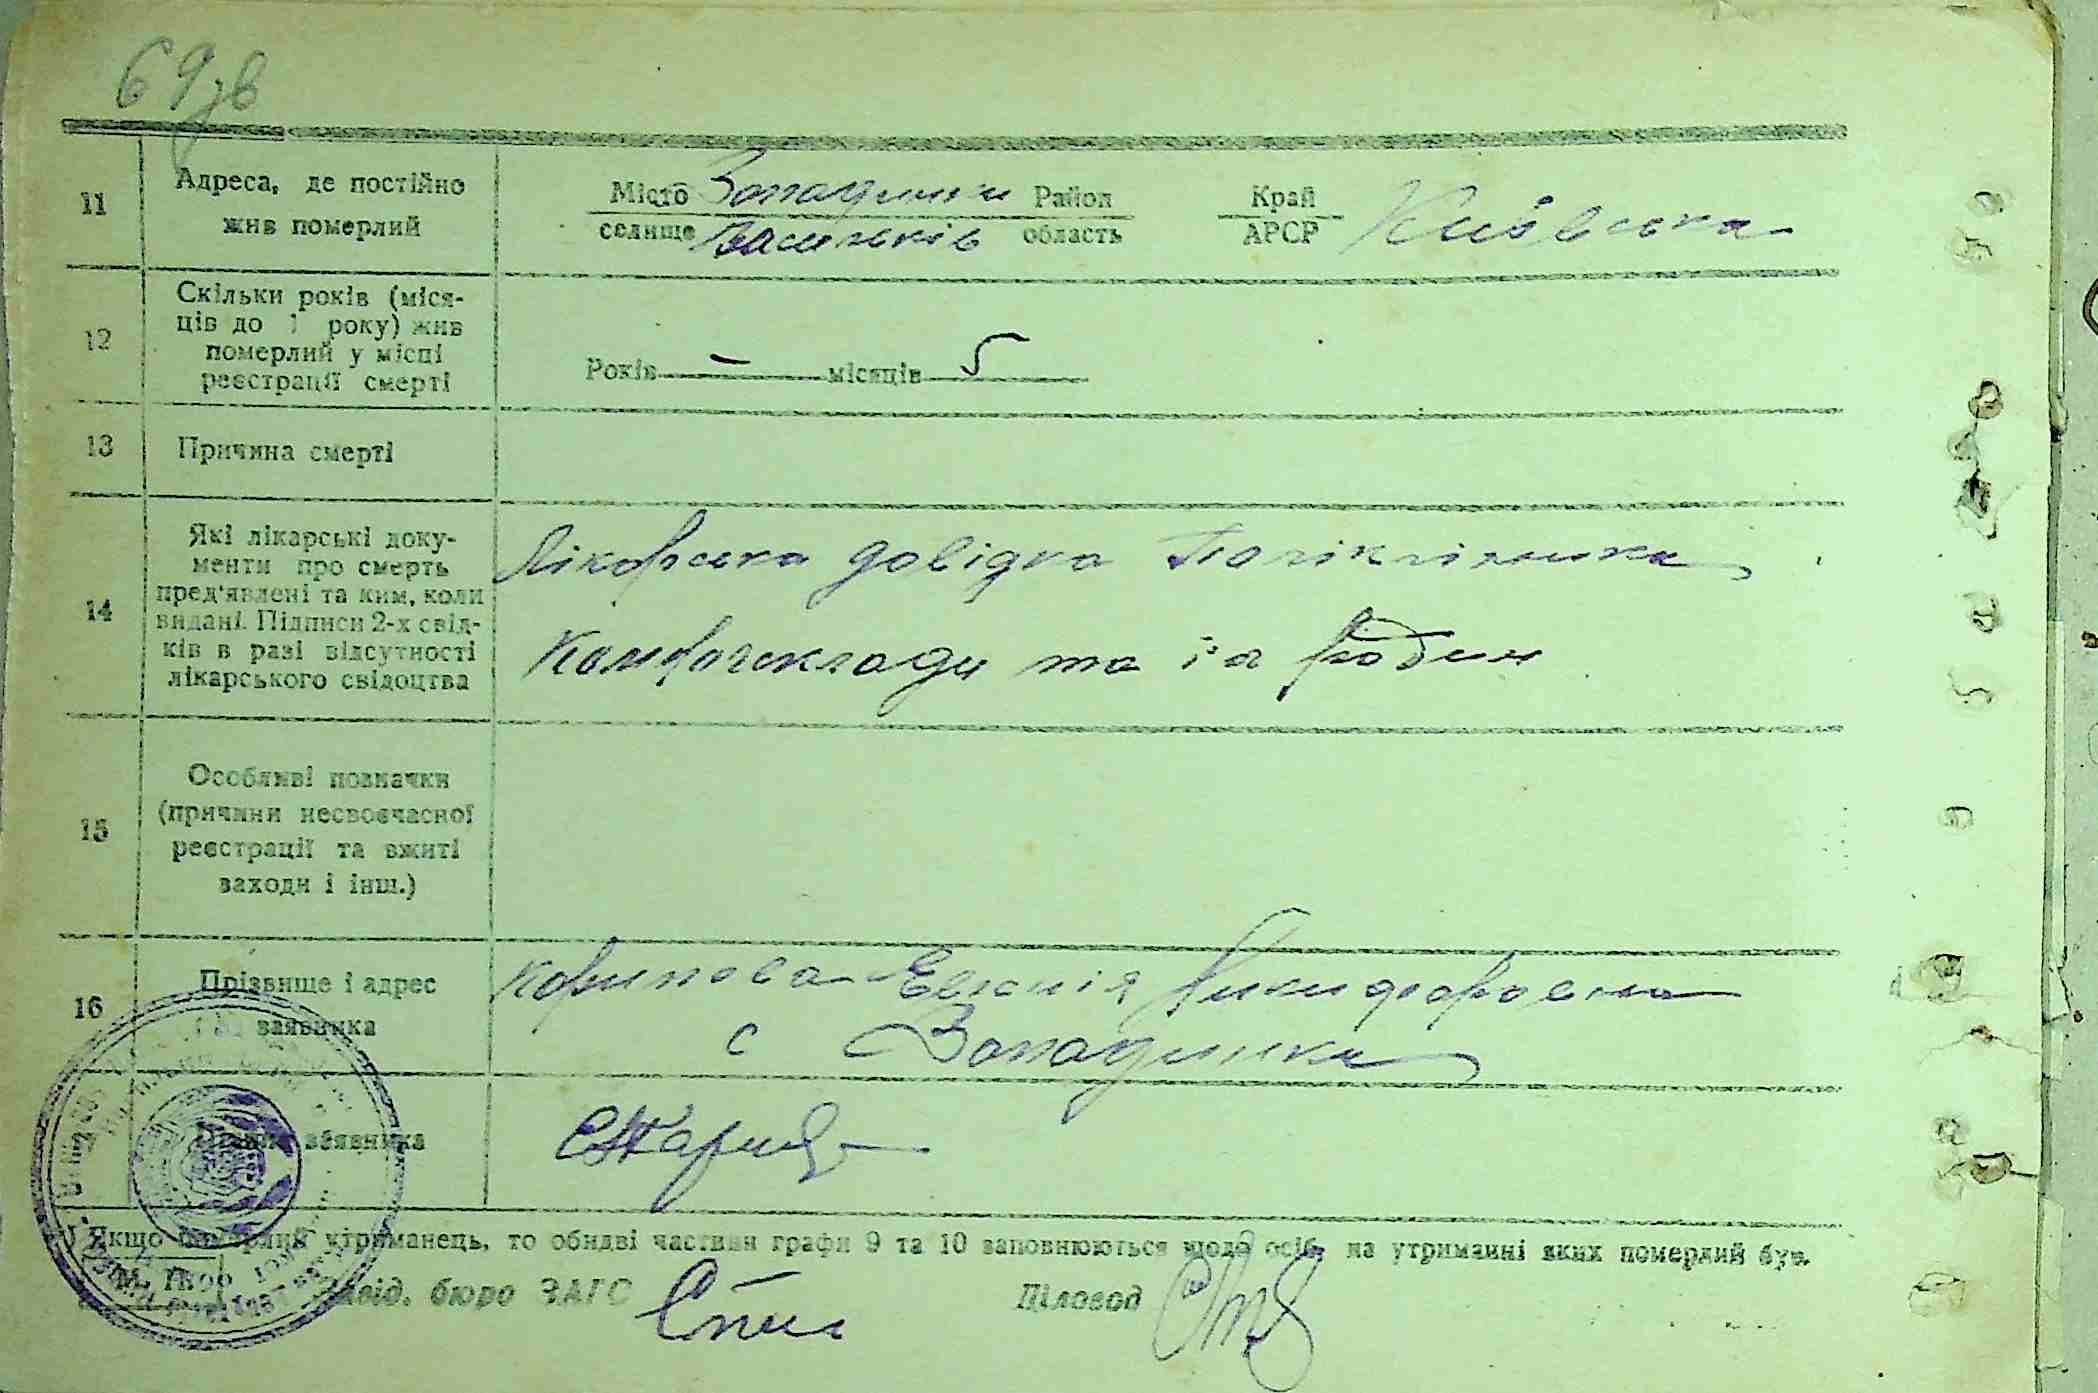 69зв
11 Адреса, де постійно жив померлий Місто Западинки Район
селище Васильків область Край АРСР Київська
12 Скільки років (міся-
ців до 1 року) жив
померлий у місці
реєстрації смерті Років — місяців 5
13 Причина смерті
14 Які лікарські доку-
менти про смерть
пред'явлені та ким, коли
видані. Підписи 2-х свід-
ків в разі відсутності
лікарського свідоцтва
Лікарська довідка Поліклініки
та
15 Особливі позначки
(причини несвоєчасної
реєстрації та вжиті
заходи і інш.)
16 Прізвище і адрес
заявника
Евгенія Никифоровна
с Западинки
Підпис заявника
Якщо померлий утриманець, то обидві частини графи 9 та 10 заповнюються щодо осіб, на утриманні яких померлий був.
М. П. Завід. бюро ЗАГС Діловод